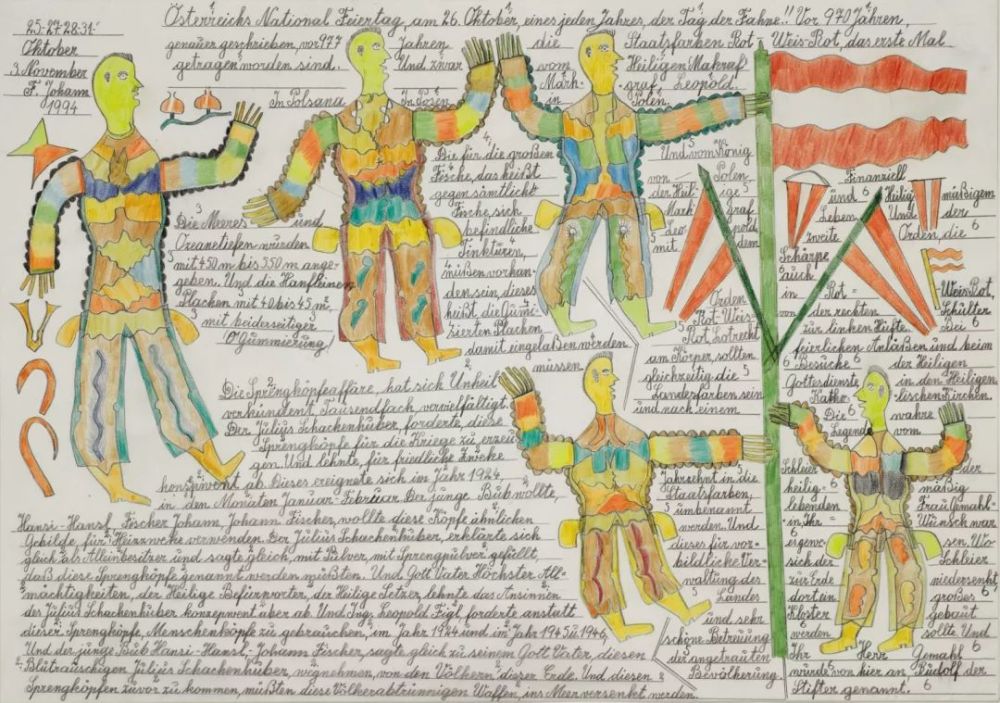 25-27-28-31
Oktober
3. November
F. Johann
1994
Österreichs National Feiertag, am 26. Oktober, eines jeden Jahres, der Tag der Fahne!! Vor 970 Jahren,
genauer geschrieben, vor 977 Jahren die Staatsfarben Rot-Weis-Rot, das erste Mal
getragen worden sind. Und zwar vom Heiligen Makraf
Mark- graf Leopold.
In Polsana In Posen in Polen,
4.
Die für die großen
Fische, das heißt
gegen sämtliche
Fische sich
befindliche
Tinkturen, 4
müßen vorhan-
den sein, dieses
heißt, die Gumi-
zierten Plachen
damit eingelaßen werden
müssen.
3
Die Meeres und
Ozeanetiefen würden
mit 450 m bis 550 m ange-
geben. Und die Hanfleinen
Plachen mit 40 bis 45 m²,
3 mit beiderseitiger 3
Gummierung!
Und vom König
von Polen,
der Heilige
Mark graf
Leopold
mit
Orden
5 Rot-Weis-
Rot, Lotrecht
am Körper, sollten
gleichzeitig die 5
Landerfarben sein
und nach einem
Jahrzehnt in die
Staatsfarben,
umbenannt
werden. Und
dieses für vor-
bildliche Ver-
waltung des
Landes
und sehr
schöne Betreuung
der angetrauten
Bevölkerung.
Finanziell
und 6 Heilig mäßigem
Leben. Und der
zweite Orden, die 6
Schärpe
6 auch
in Rot- Weis-Rot,
von der rechten Schulter
zur linken Hüfte. Bei
feierlichen Anläßen und beim
6 Besuche 6 der Heiligen
Gottesdienste in den Heiligen
Katholischen Kirchen.
Die 6 wahre
Legende vom
Schleier der
heilig- 6 mäßig
lebenden Frau Gemahl-
in Ihr- Wunsch war
es gewe- sen, Wo
sich der Schleier
zur Erde niedersenkt
dort ein großes 6
Kloster gebaut
werden sollte. Und
Ihr Herr Gemahl 6
würde von hier an Rudolf der
Stifter genannt. 6
Die Sprengköpfeaffäre, hat sich Unheil
verkündent, Tausendfach, vervielfältigt.
Der Julius Schackenhüber, forderte, diese
Sprengköpfe für die Kriege zu erzeu-
gen. Und lehnte, für friedliche Zwecke
konzequent ab. Dieses ereignete sich im Jahr 1924,
in den Monaten Januar-Februar. Der junge Bub wollte,
Hansi-Hansl, Fischer Johann, Johann Fischer, wollte diese Köpfe ähnlichen
Gebilde, für Heizzwecke verwenden. Der Julius Schackenhüber, erklärte sich
gleich als Alleinbesitzer und sagte gleich, mit Pulver, mit Sprengpulver gefüllt,
daß diese Sprengköpfe genannt werden müßten. Und Gott Vater Höchster All-
mächtigkeiten, der Heilige Befürporter, der Heilige Setzer, lehnte das Ansinnen
des Julius Schackenhüber konzequent aber ab. Und Ing. Leopold Figl forderte anstatt
dieser Sprengköpfe, Menschenköpfe zu gebrauchen, im Jahr 1924 und im Jahr 1945 u 1946,
Und der junge Bub Hansi-Hansl-Johann Fischer, sagte gleich zu seinem Gott Vater, diesen
Blutrauschigen Julius Schackenhüber, wegnehmen, von den Völkern dieser Erde. Und diesen
Sprengköpfen zuvor zu kommen, müßten diese Völkerabtrünnigen Waffen, ins Meer versenkt werden.